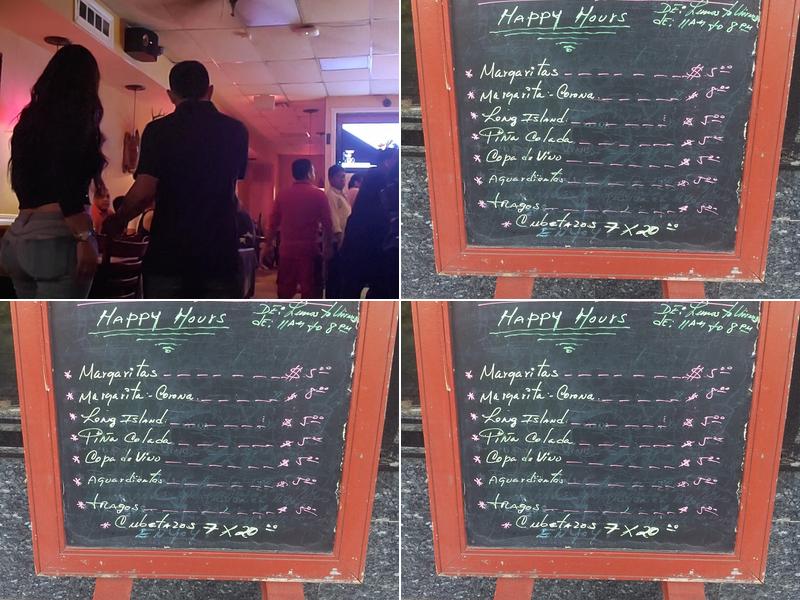 Happy Hours
DE: Lunes to Viernes
de: 11AM to 8 PM
* Margaritas $ 5.00
* Margarita - Corona 8.00
* Long Island 5.00
* Piña Colada 5.00
* Copa de Vino 5.00
* Aguardientes 5.00
* tragos 5.00
* Cubetazos 7 X 20.00
Happy Hours
DE: Lunes to Viernes
de: 11AM to 8 PM
* Margaritas $ 5.00
* Margarita - Corona 8.00
* Long Island 5.00
* Piña Colada 5.00
* Copa de Vino 5.00
* Aguardientes 5.00
* tragos 5.00
* Cubetazos 7 X 20.00
Happy Hours
DE: Lunes to Viernes
de: 11AM to 8 PM
* Margaritas $ 5.00
* Margarita - Corona 8.00
* Long Island 5.00
* Piña Colada 5.00
* Copa de Vino 5.00
* Aguardientes 5.00
* tragos 5.00
* Cubetazos 7 X 20.00